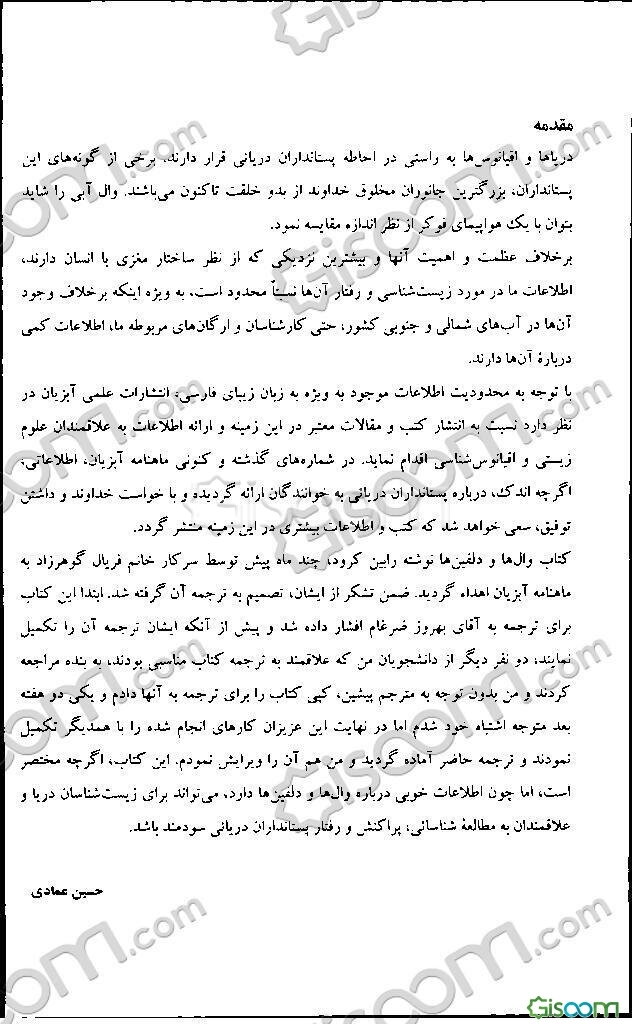 مقدمه
دریاها و اقیانوس‌ها به راستی در احاطه پستانداران دریائی قرار دارند، برخی از گونه‌های این
پستانداران، بزرگترین جانوران مخلوق خداوند از بدو خلقت تاکنون می‌باشند. وال آبی را شاید
بتوان با یک هواپیمای فوکر از نظر اندازه مقایسه نمود.
برخلاف عظمت و اهمیت آنها و بیشترین نزدیکی که از نظر ساختار مغزی با انسان دارند،
اطلاعات ما در مورد زیست‌شناسی و رفتار آن‌ها نسبتاً محدود است، به ویژه اینکه برخلاف وجود
آن‌ها در آب‌های شمالی و جنوبی کشور، حتی کارشناسان و ارگان‌های مربوطه ما، اطلاعات کمی
دربارهٔ آن‌ها دارند.
با توجه به محدودیت اطلاعات موجود به ویژه به زبان زیبای فارسی، انتشارات علمی آبزیان در
نظر دارد نسبت به انتشار کتب و مقالات معتبر در این زمینه و ارائه اطلاعات به علاقمندان علوم
زیستی و اقیانوس‌شناسی اقدام نماید. در شماره‌های گذشته و کنونی ماهنامه آبزیان، اطلاعاتی،
اگرچه اندک، درباره پستانداران دریائی به خوانندگان ارائه گردیده و با خواست خداوند و داشتن
توفیق، سعی خواهد شد که کتب و اطلاعات بیشتری در این زمینه منتشر گردد.
کتاب وال‌ها و دلفین‌ها نوشته رابین کرود، چند ماه پیش توسط سرکار خانم فریال گوهرزاد به
ماهنامه آبزیان اهداء گردید. ضمن تشکر از ایشان، تصمیم به ترجمه آن گرفته شد. ابتدا این کتاب
برای ترجمه به آقای بهروز ضرغام افشار داده شد و پیش از آنکه ایشان ترجمه آن را تکمیل
نمایند، دو نفر دیگر از دانشجویان من که علاقمند به ترجمه کتاب مناسبی بودند، به بنده مراجعه
کردند و من بدون توجه به مترجم پیشین، کپی کتاب را برای ترجمه به آنها دادم و یکی دو هفته
بعد متوجه اشتباه خود شدم اما در نهایت این عزیزان کارهای انجام شده را با همدیگر تکمیل
نمودند و ترجمه حاضر آماده گردید و من هم آن را ویرایش نمودم. این کتاب، اگرچه مختصر
است، اما چون اطلاعات خوبی درباره وال‌ها و دلفین‌ها دارد، می‌تواند برای زیست‌شناسان دریا و
علاقمندان به مطالعهٔ شناسائی، پراکنش و رفتار پستانداران دریائی سودمند باشد.
حسین عمادی
Gisoom.com